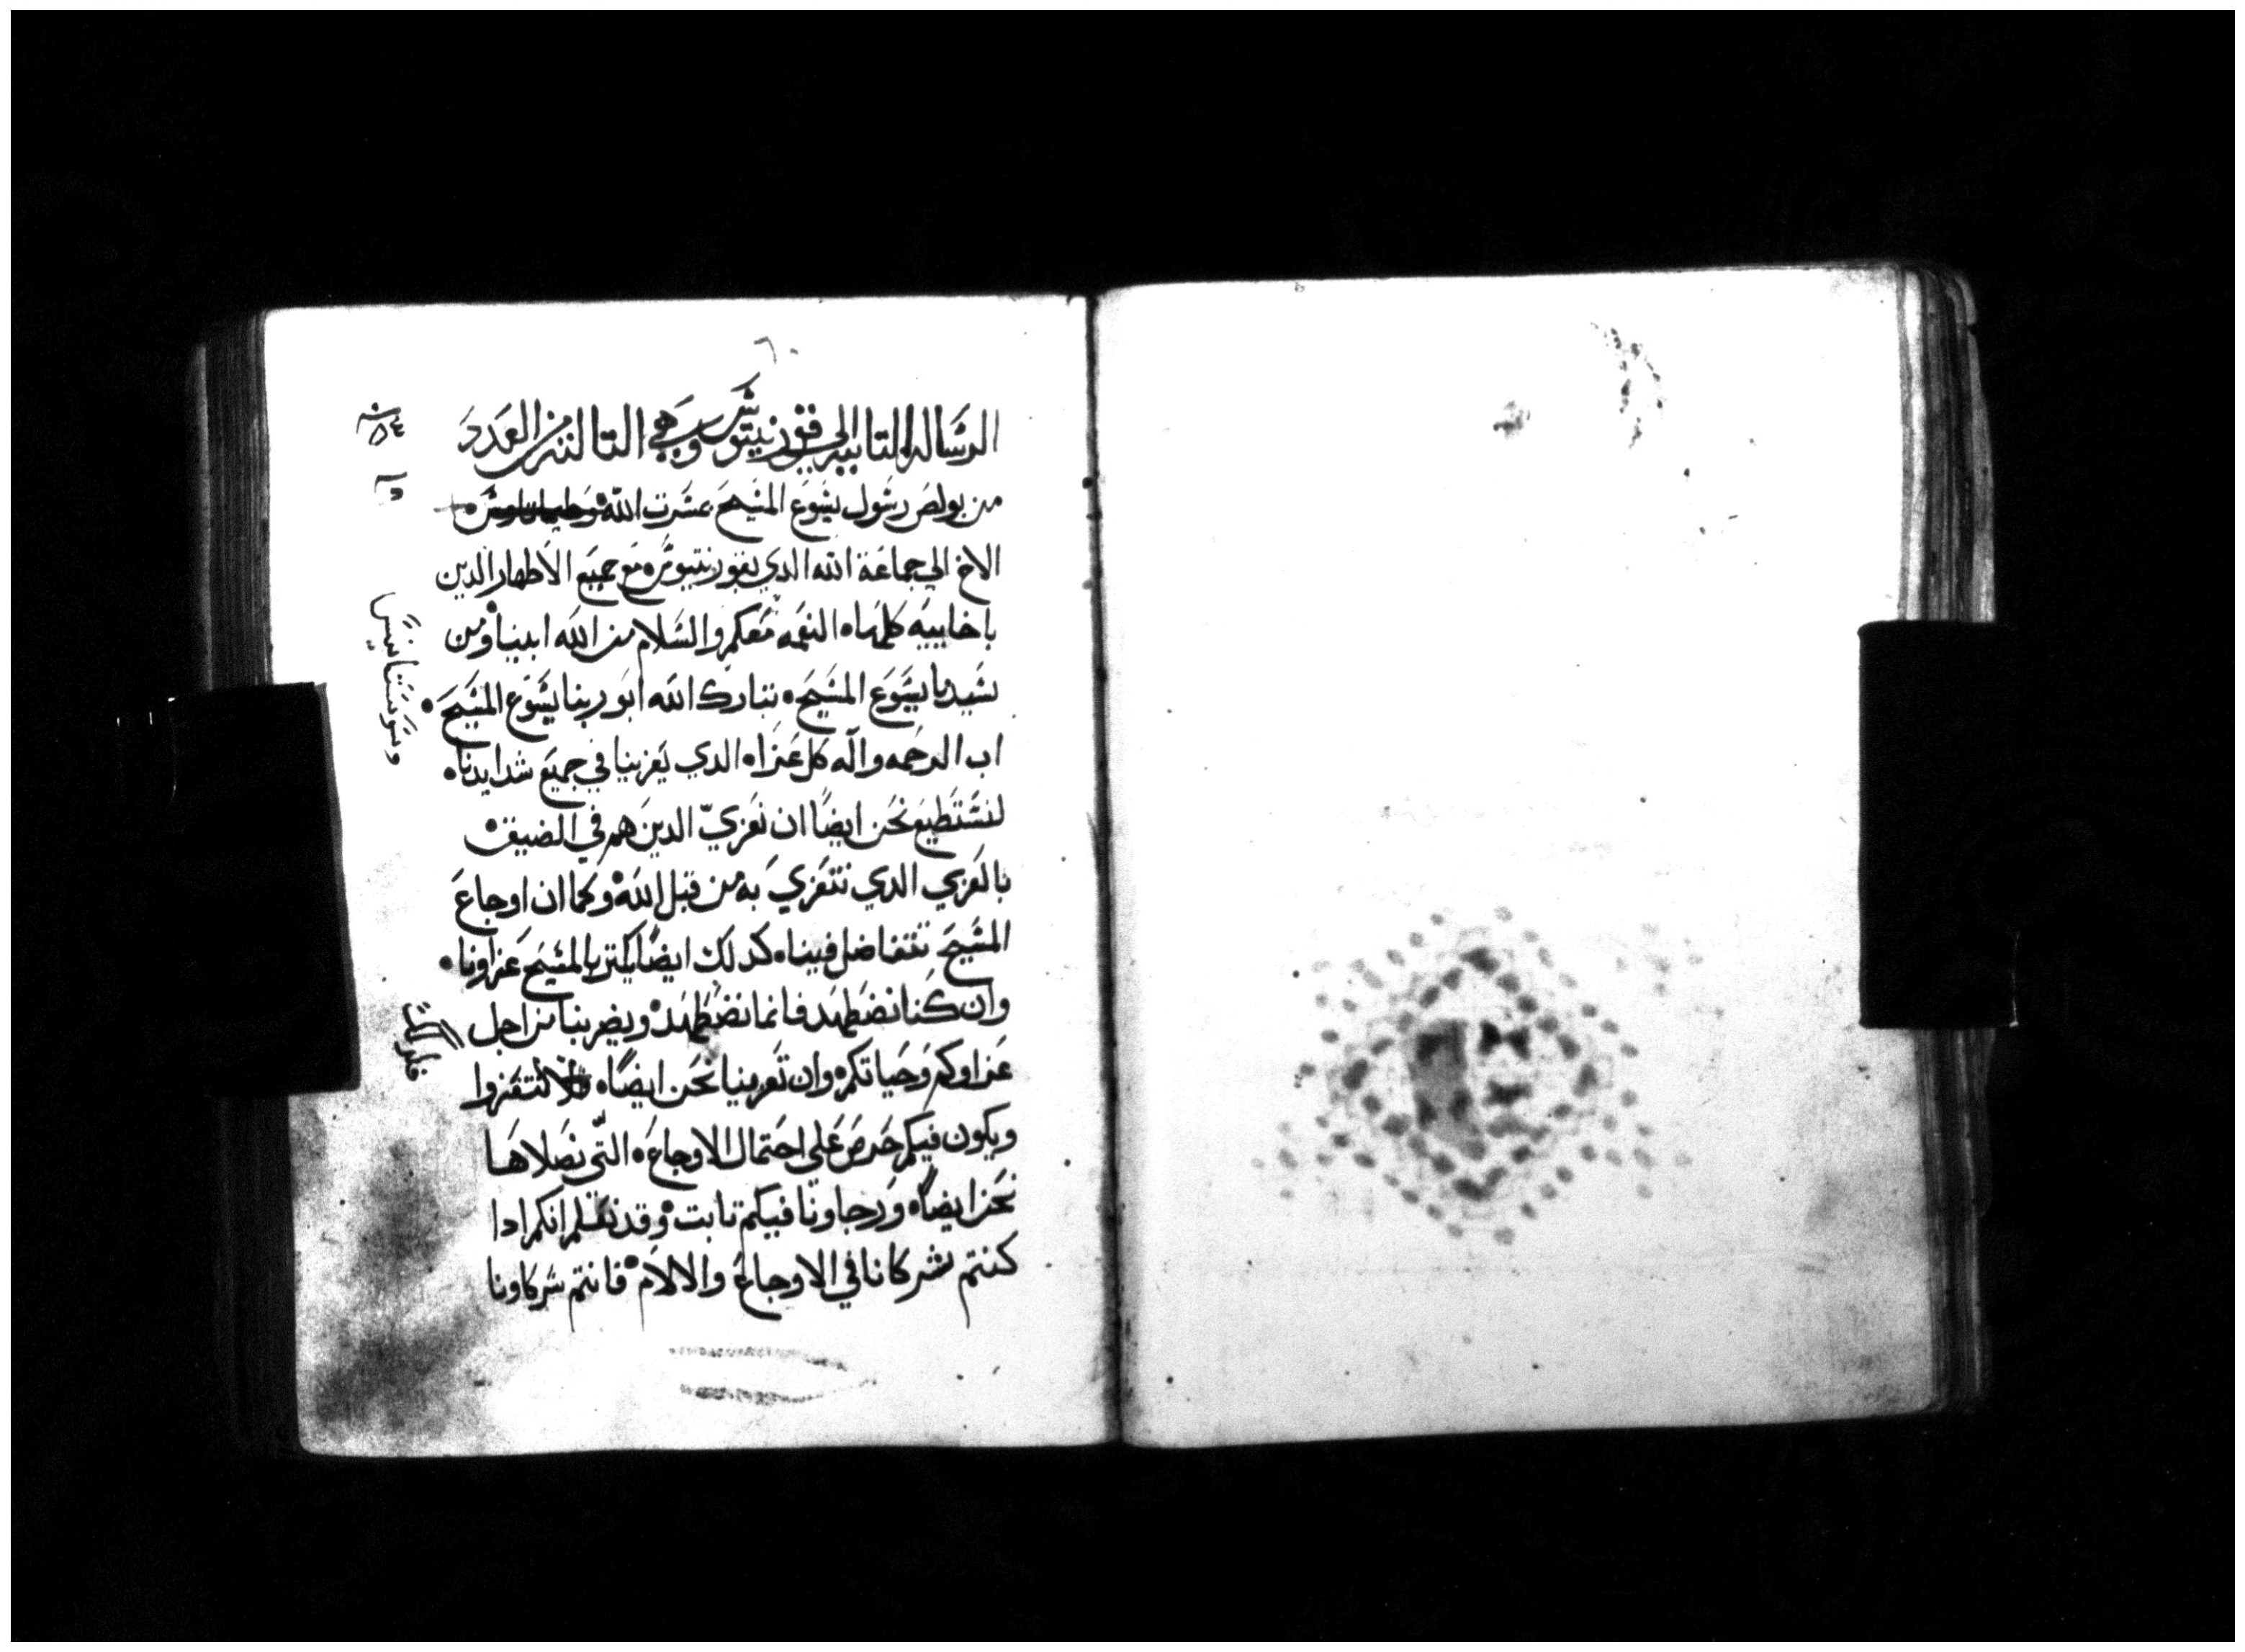 ٦٠
الرساله التانيه الى قورنتيوش وهي التالته من العدد
من بولص رسول يسوع المسيح بمسرت الله
الاخ الي جماعة الله الدي بقورنتيوس مع جميع الاطهار الدين
باخاييه كلها النعمه معكم والسلام من الله ابينا ومن
سيدنا يسوع المسيح تبارك الله ابو ربنا يسوع المسيح
اب الرحمه واله كل عزاء الدي يعزينا في جميع شدايدنا
لنستطيع نحن ايضًا ان نعزيّ الدين هم في الضيق
بالعزي الدي نتعزي به من قبل الله وكما ان اوجاع
المسيح تتفاضل فينا كدلك ايضًا يكتر بالمسيح عزاونا
وان كنا نضطهد فانما نضطهد ويضر بنا من اجل
عزاوكم وحياتكم وان تعزينا نحن ايضًا فلتتعزوا
ويكون فيكم حرص علي احتمال الاوجاع التّي نصلاها
نحن ايضًا ورجاونا فيكم تابت وقد نعلم انكم ادا
كنتم شركانا في الاوجاع والالام فانتم شركاونا